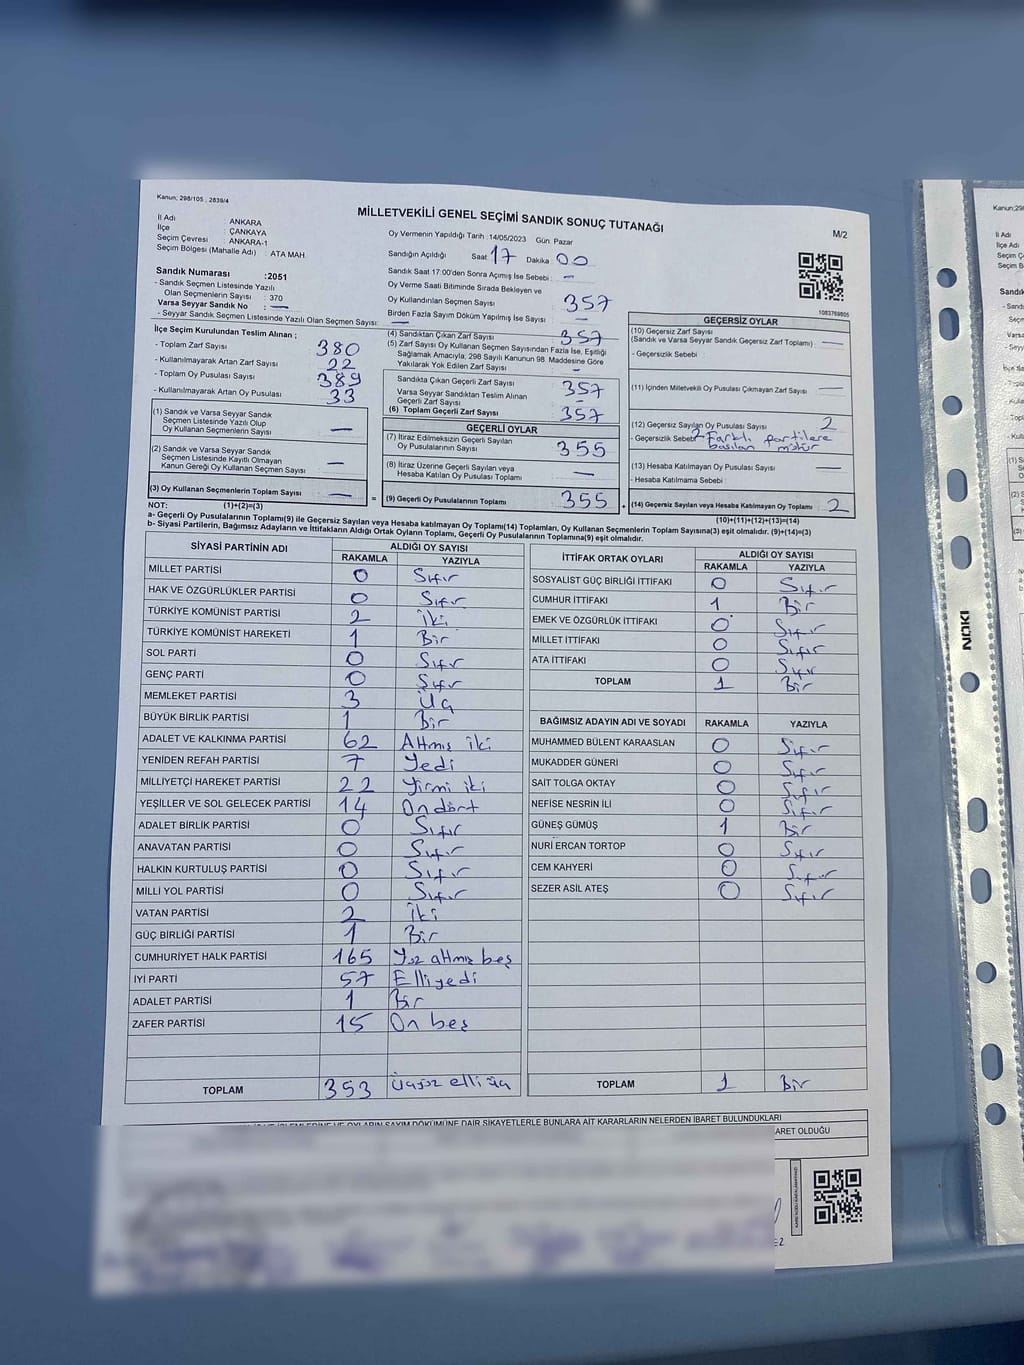 Kanun; 298/105 , 2839/4
MİLLETVEKİLİ GENEL SEÇİMİ SANDIK SONUÇ TUTANAĞI
M/2
İl Adı : ANKARA
İlçe : ÇANKAYA
Seçim Çevresi : ANKARA-1
Seçim Bölgesi (Mahalle Adı) : ATA MAH.
Oy Vermenin Yapıldığı Tarih :14/05/2023 Gün: Pazar
Sandığın Açıldığı Saat 17 Dakika 00
Sandık Saat 17:00'den Sonra Açımış İse Sebebi : —
Oy Verme Saati Bitiminde Sırada Bekleyen ve
Oy Kullandırılan Seçmen Sayısı : 357
Birden Fazla Sayım Döküm Yapılmış İse Sayısı : —
Sandık Numarası :2051
- Sandık Seçmen Listesinde Yazılı
Olan Seçmenlerin Sayısı : 370
Varsa Seyyar Sandık No : —
- Seyyar Sandık Seçmen Listesinde Yazılı Olan Seçmen Sayısı: —
1083769805
İlçe Seçim Kurulundan Teslim Alınan ;
- Toplam Zarf Sayısı : 380
- Kullanılmayarak Artan Zarf Sayısı : 22
- Toplam Oy Pusulası Sayısı : 389
- Kullanılmayarak Artan Oy Pusulası : 33
(1) Sandık ve Varsa Seyyar Sandık
Seçmen Listesinde Yazılı Olup
Oy Kullanan Seçmenlerin Sayısı —
(2) Sandık ve Varsa Seyyar Sandık
Seçmen Listesinde Kayıtlı Olmayan
Kanun Gereği Oy Kullanan Seçmen Sayısı —
(3) Oy Kullanan Seçmenlerin Toplam Sayısı —
(1)+(2)=(3)
(4) Sandıktan Çıkan Zarf Sayısı : 357
(5) Zarf Sayısı Oy Kullanan Seçmen Sayısından Fazla İse, Eşitliği
Sağlamak Amacıyla, 298 Sayılı Kanunun 98. Maddesine Göre
Yakılarak Yok Edilen Zarf Sayısı : —
Sandıkta Çıkan Geçerli Zarf Sayısı 357
Varsa Seyyar Sandıktan Teslim Alınan
Geçerli Zarf Sayısı —
(6) Toplam Geçerli Zarf Sayısı 357
GEÇERLİ OYLAR
(7) İtiraz Edilmeksizin Geçerli Sayılan
Oy Pusulalarının Sayısı 355
(8) İtiraz Üzerine Geçerli Sayılan veya
Hesaba Katılan Oy Pusulası Toplamı —
= (9) Geçerli Oy Pusulalarının Toplamı 355
GEÇERSİZ OYLAR
(10) Geçersiz Zarf Sayısı
(Sandık ve Varsa Seyyar Sandık Geçersiz Zarf Toplamı) : —
- Geçersizlik Sebebi :
(11) İçinden Milletvekili Oy Pusulası Çıkmayan Zarf Sayısı : —
(12) Geçersiz Sayılan Oy Pusulası Sayısı : 2
- Geçersizlik Sebebi : Farklı partilere
(13) Hesaba Katılmayan Oy Pusulası Sayısı : —
- Hesaba Katılmama Sebebi :
+ (14) Geçersiz Sayılan veya Hesaba Katılmayan Oy Toplamı 2
(10)+(11)+(12)+(13)=(14)
NOT:
a- Geçerli Oy Pusulalarının Toplamı(9) ile Geçersiz Sayılan veya Hesaba katılmayan Oy Toplamı(14) Toplamları, Oy Kullanan Seçmenlerin Toplam Sayısına(3) eşit olmalıdır. (9)+(14)=(3)
b- Siyasi Partilerin, Bağımsız Adayların ve İttifakların Aldığı Ortak Oyların Toplamı, Geçerli Oy Pusulalarının Toplamına(9) eşit olmalıdır.
SİYASİ PARTİNİN ADI ALDIĞI OY SAYISI
RAKAMLA YAZIYLA
MİLLET PARTİSİ 0 Sıfır
HAK VE ÖZGÜRLÜKLER PARTİSİ 0 Sıfır
TÜRKİYE KOMÜNİST PARTİSİ 2 iki
TÜRKİYE KOMÜNİST HAREKETİ 1 Bir
SOL PARTİ 0 Sıfır
GENÇ PARTİ 0 Sıfır
MEMLEKET PARTİSİ 3 Üç
BÜYÜK BİRLİK PARTİSİ 1 Bir
ADALET VE KALKINMA PARTİSİ 62 Altmış iki
YENİDEN REFAH PARTİSİ 7 Yedi
MİLLİYETÇİ HAREKET PARTİSİ 22 Yirmi iki
YEŞİLLER VE SOL GELECEK PARTİSİ 14 On dört
ADALET BİRLİK PARTİSİ 0 Sıfır
ANAVATAN PARTİSİ 0 Sıfır
HALKIN KURTULUŞ PARTİSİ 0 Sıfır
MİLLİ YOL PARTİSİ 0 Sıfır
VATAN PARTİSİ 2 iki
GÜÇ BİRLİĞİ PARTİSİ 1 Bir
CUMHURİYET HALK PARTİSİ 165 Yüz altmış beş
İYİ PARTİ 57 Elli yedi
ADALET PARTİSİ 1 Bir
ZAFER PARTİSİ 15 On beş
TOPLAM 353 Üçyüz elli üç
İTTİFAK ORTAK OYLARI ALDIĞI OY SAYISI
RAKAMLA YAZIYLA
SOSYALIST GÜÇ BİRLİĞİ İTTİFAKI 0 Sıfır
CUMHUR İTTİFAKI 1 Bir
EMEK VE ÖZGÜRLÜK İTTİFAKI 0 Sıfır
MİLLET İTTİFAKI 0 Sıfır
ATA İTTİFAKI 0 Sıfır
TOPLAM 1 Bir
BAĞIMSIZ ADAYIN ADI VE SOYADI RAKAMLA YAZIYLA
MUHAMMED BÜLENT KARAASLAN 0 Sıfır
MUKADDER GÜNERİ 0 Sıfır
SAİT TOLGA OKTAY 0 Sıfır
NEFİSE NESRİN İLİ 0 Sıfır
GÜNEŞ GÜMÜŞ 1 Bir
NURİ ERCAN TORTOP 0 Sıfır
CEM KAHYERİ 0 Sıfır
SEZER ASİL ATEŞ 0 Sıfır
TOPLAM 1 Bir
OYLARIN SAYIM DÖKÜMÜNE DAİR ŞİKAYETLERLE BUNLARA AİT KARARLARIN NELERDEN İBARET BULUNDUKLARI
OLDUĞU
NOKI
Kanun;29
İl Adı
İlçe Adı
Seçim Ç
Seçim B